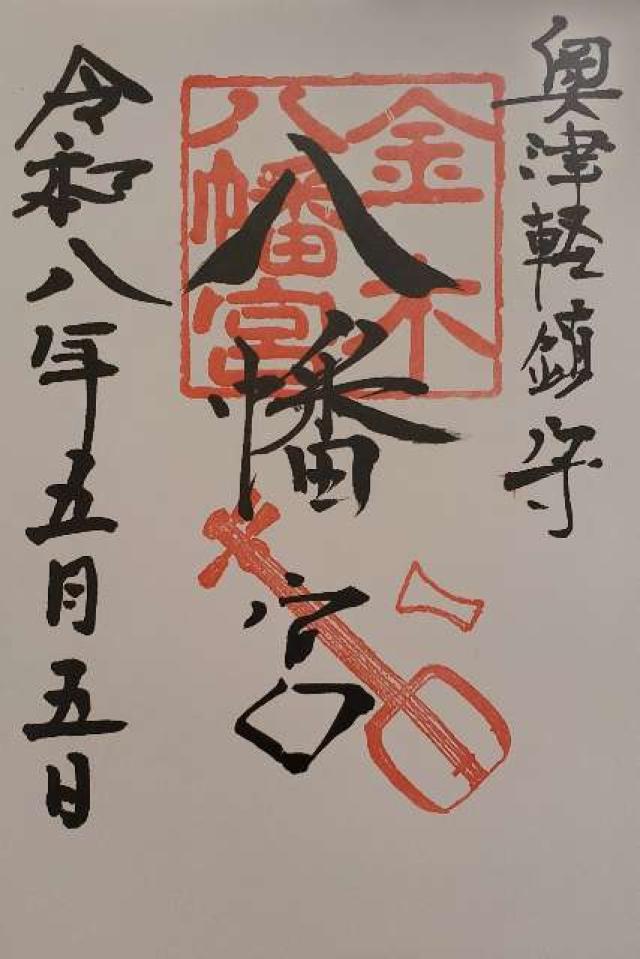 奥津軽鎮守
金木
八幡宮
八幡宮
令和八年五月五日